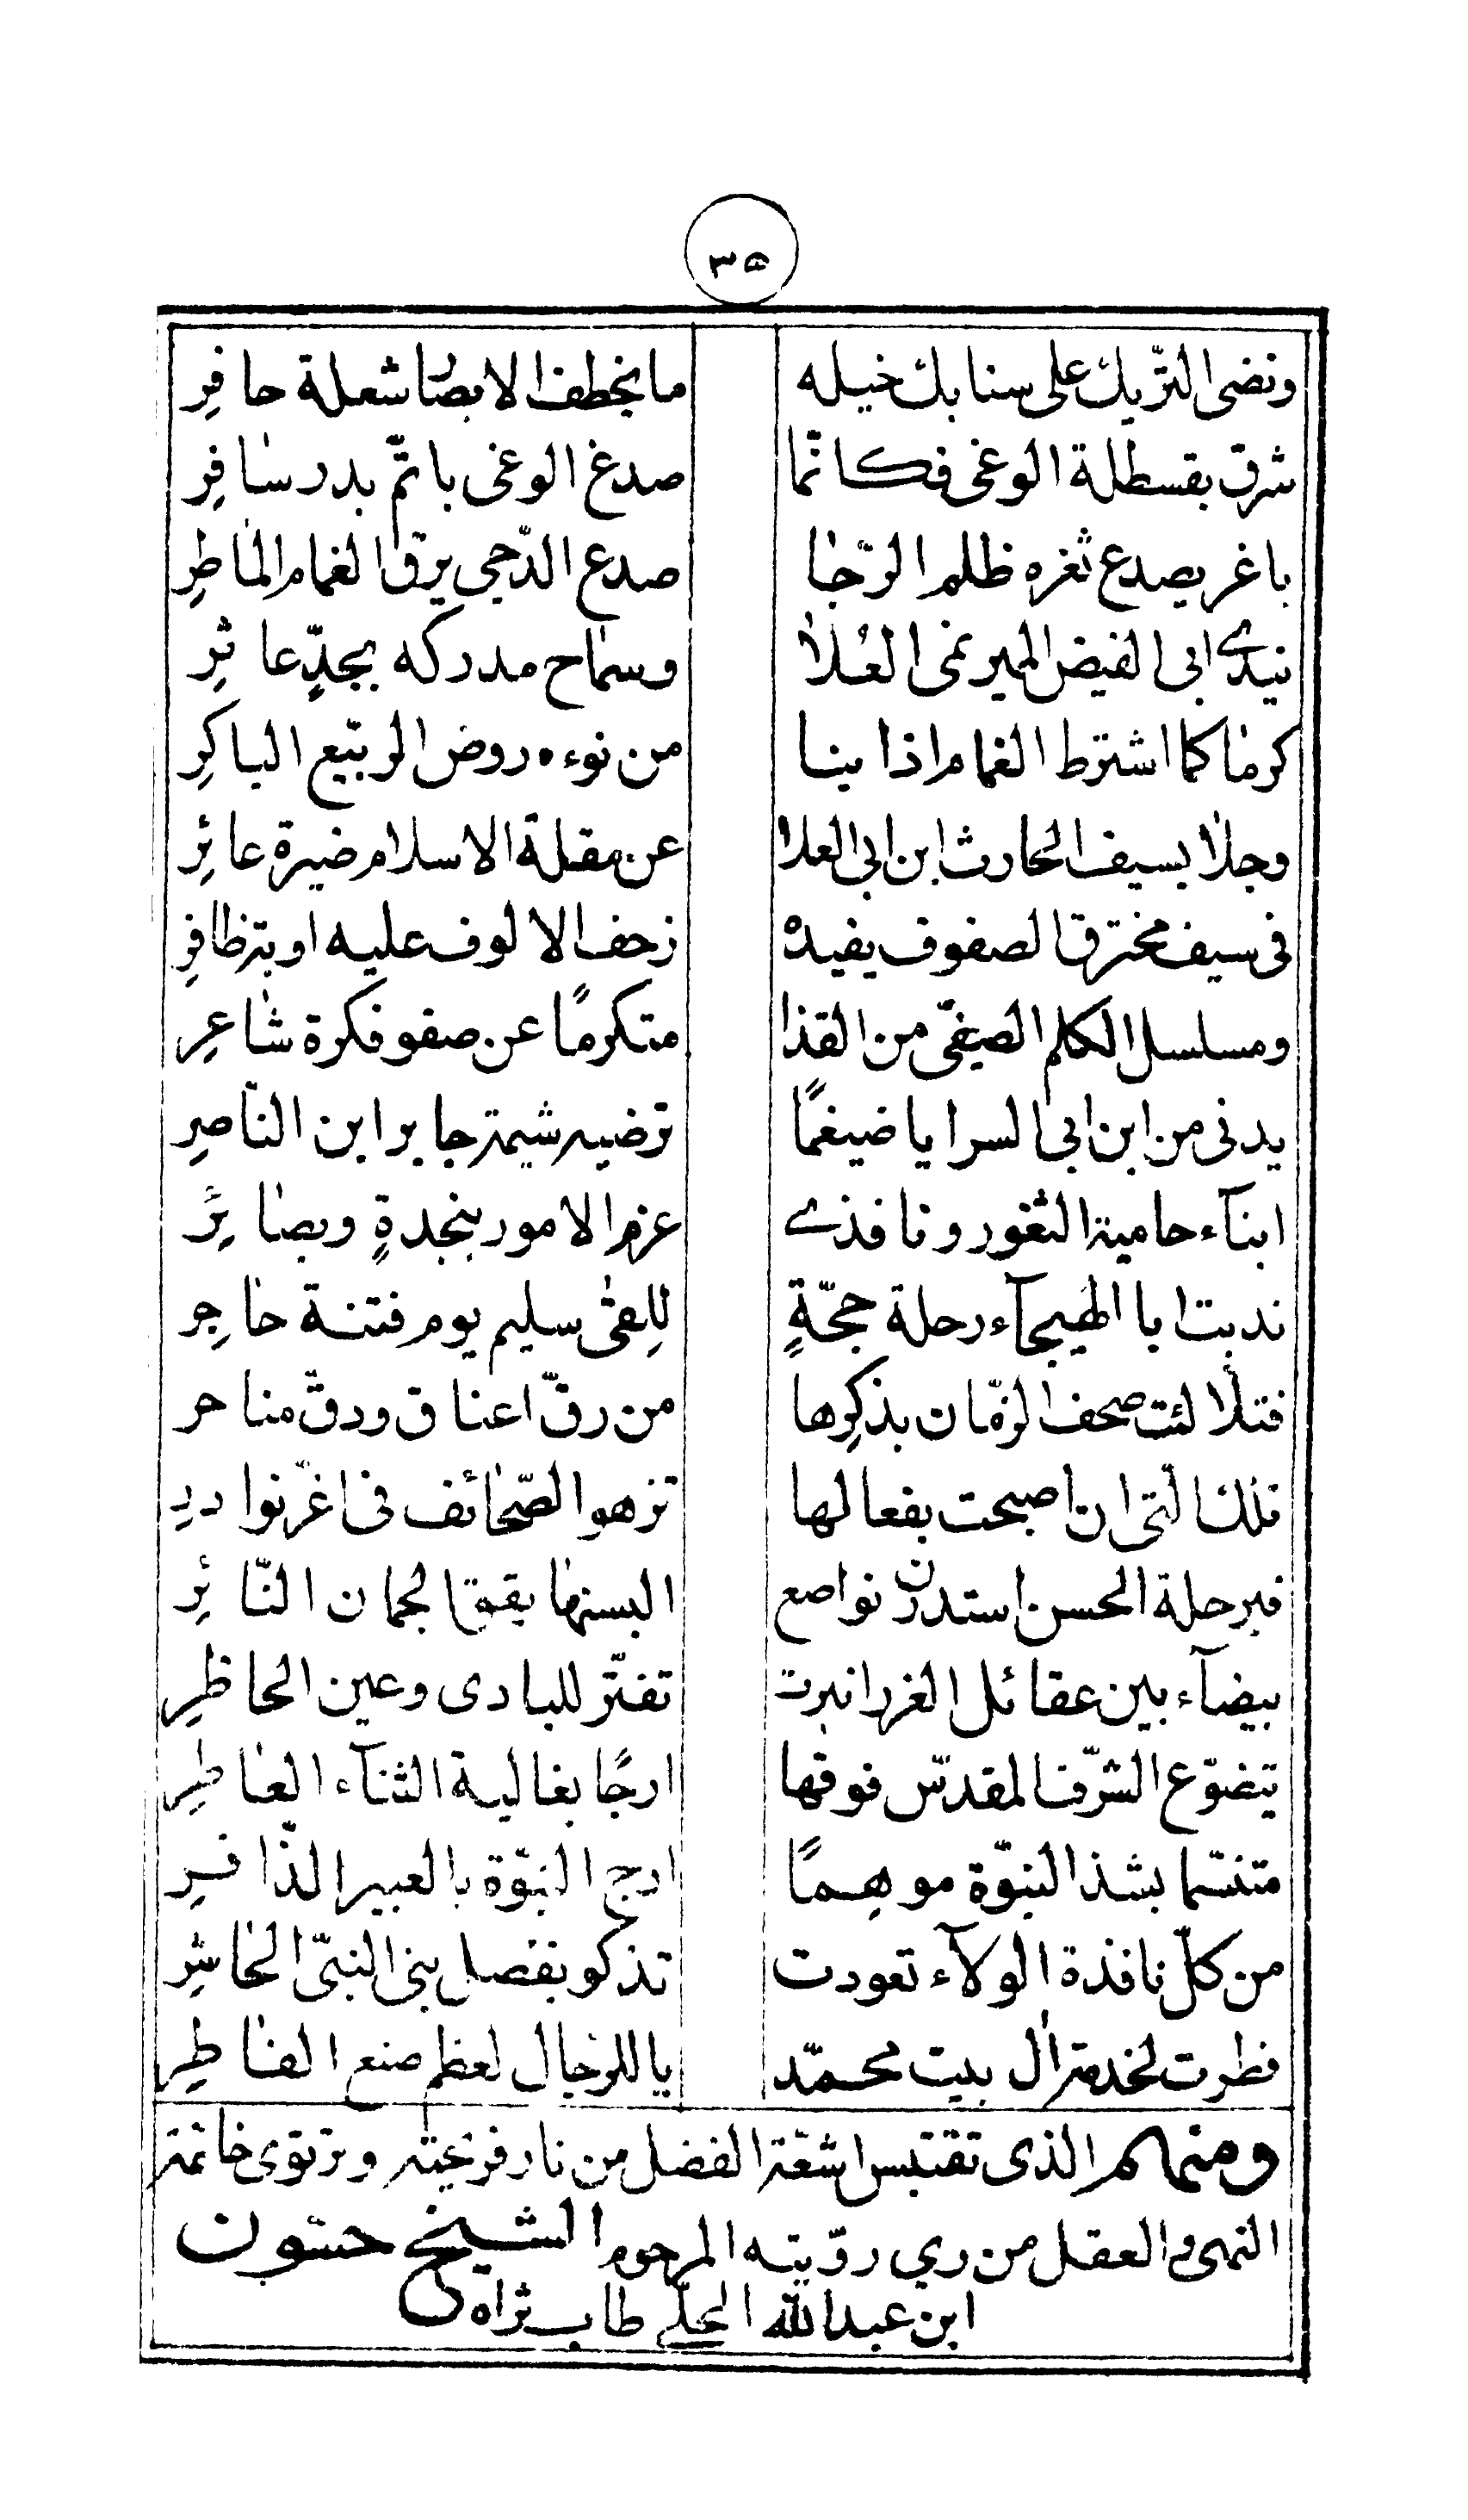 ٣٥
ونضى التّريك على سنابك خيله ما يخطف الابصار شعلة حافِرِ
شرق بقسطلة الوغى فكانّما صدغ الوغى باتمّ بدر سافِرِ
باغر يصدع ثغره ظلم الرّجا صدع الدّجى برق الغمام الماطِرِ
بيدى ابى الفيض المير نمى العُلا وسماح مدركه بجدٍّ عاثِرِ
كرما كما اشترط الغمام اذا مينا من نوءه روض الربيّع الباكِرِ
وجلا بسيف الحارث ابن ابى العلا عن مقلة الاسلام ضيرة عائِرِ
فى سيف مخترق الصفوف يفيده زحف الالوف عليه اوبة ظافِرِ
ومسلسل الكلم الصيفّى من القذا متكرمًا عن صفو فكرة شاعِرِ
يدنى من ابن ابى السرايا ضيغمًا ترضيه شيمة جابر ابن النّاصِرِ
ابنآء حامية الثغور ونافذے عزم الامور بنجدةٍ وبصائِرً
ندبت ابا الهيجآء رحلة حجّةٍ لِلِقى سليم يوم فتنة حاجِر
فتلألئت صحف الزمّان بذكرِها من رقّ اعناق ودقّ مناحر
تلك التى ان اصبحت بفعالها تزهو الصّحائف فى اغرّ نوادرِ
فبرحلة الحسن استدرن نواصع البستها يقق الجمان النّائِرِ
بيضآء بين عقائل الغر انبرت تفترّ للبادى وعين الحاظِرِ
يتضوّع الشّرف المقدسّ فوقها ارجًا بغالية الثنآء العاطِرِ
متنسّما بشذا النبوّة موهِمًا ارج النبوّة بالعبير الذّافِرِ
من كلّ نافذة الولآء تعودت تذكو بفضل بنى النبىّ الحاشِرِ
فطرت لخدمة ال بيت محمّد ياللرجال لعظم صنع الفاطِرِ
ومنهم الذى تقتبس اشعّة الفضل من نار قريحته وترتوى خائمة
النهى والعقل من ري رويّته المرحوم الشيخ حسّون
ابن عبدالله الحلّي طاب ثراه